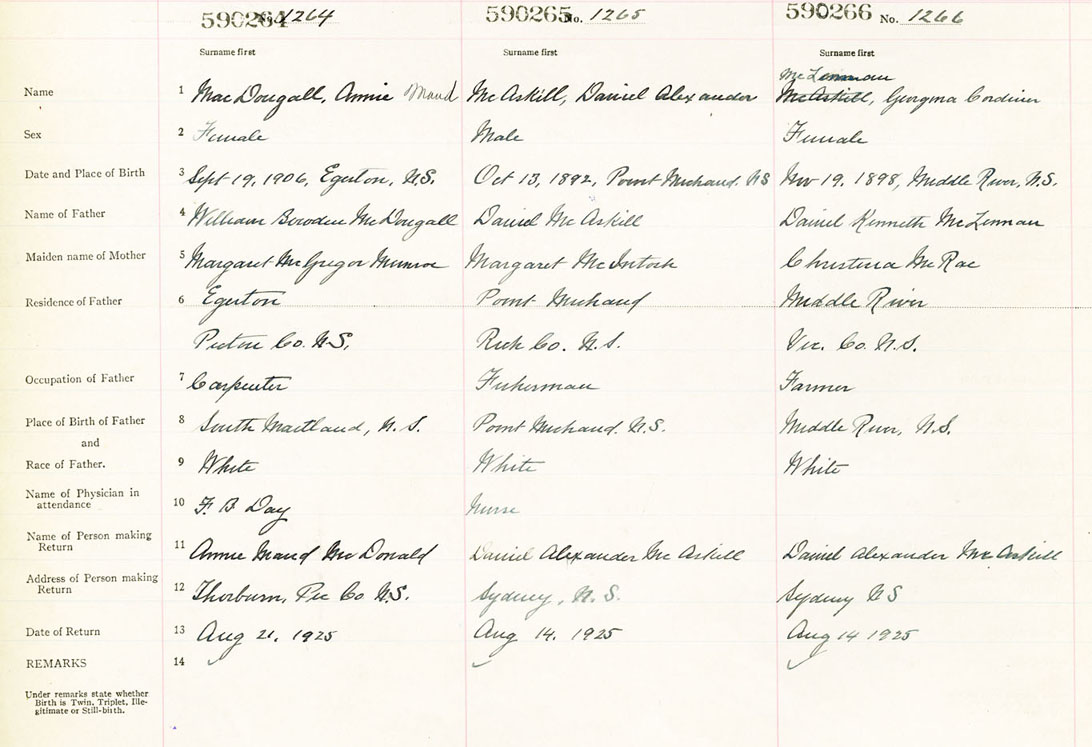 590264 No. 1264 590265 No. 1265 590266 No. 1266
Surname first Surname first Surname first
McLennan
Name 1 MacDougall, Annie Maud McAskill, Daniel Alexander McAskill, Georgina Cordiner
Sex 2 Female Male Female
Date and Place of Birth 3 Sept 19, 1906, Egerton, N.S. Oct 13, 1892, Point Michaud. NS Nov 19. 1898, Middle River, N.S.
Name of Father 4 William Bowden McDougall Daniel McAskill Daniel Kenneth McLennan
Maiden name of Mother 5 Margaret McGregor Munroe Margaret McIntosh Christina McRae
Residence of Father 6 Egerton Point Michaud Middle River
Pictou Co. N.S. Rich Co. N.S. Vic. Co. N.S.
Occupation of Father 7 Carpenter Fisherman Farmer
Place of Birth of Father 8 South Maitland, N.S. Point Michaud. N.S. Middle River, N.S.
and
Race of Father. 9 White White White
Name of Physician in
attendance 10 F. B Day Nurse
Name of Person making
Return 11 Annie Maud McDonald Daniel Alexander McAskill Daniel Alexander McAskill
Address of Person making
Return 12 Thorburn, Pic Co N.S. Sydney, N.S. Sydney NS
Date of Return 13 Aug 21, 1925 Aug 14. 1925 Aug 14 1925
REMARKS 14
Under remarks state whether
Birth is Twin, Triplet, Ille-
gitimate or Still-birth.